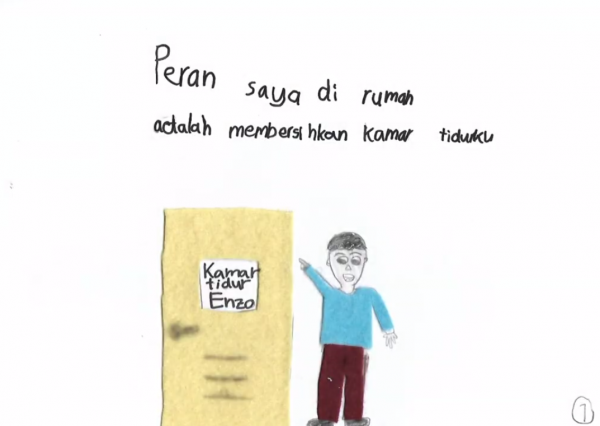 Peran saya di rumah
adalah membersihkan kamar tidurku
Kamar
tidur
Enzo
1